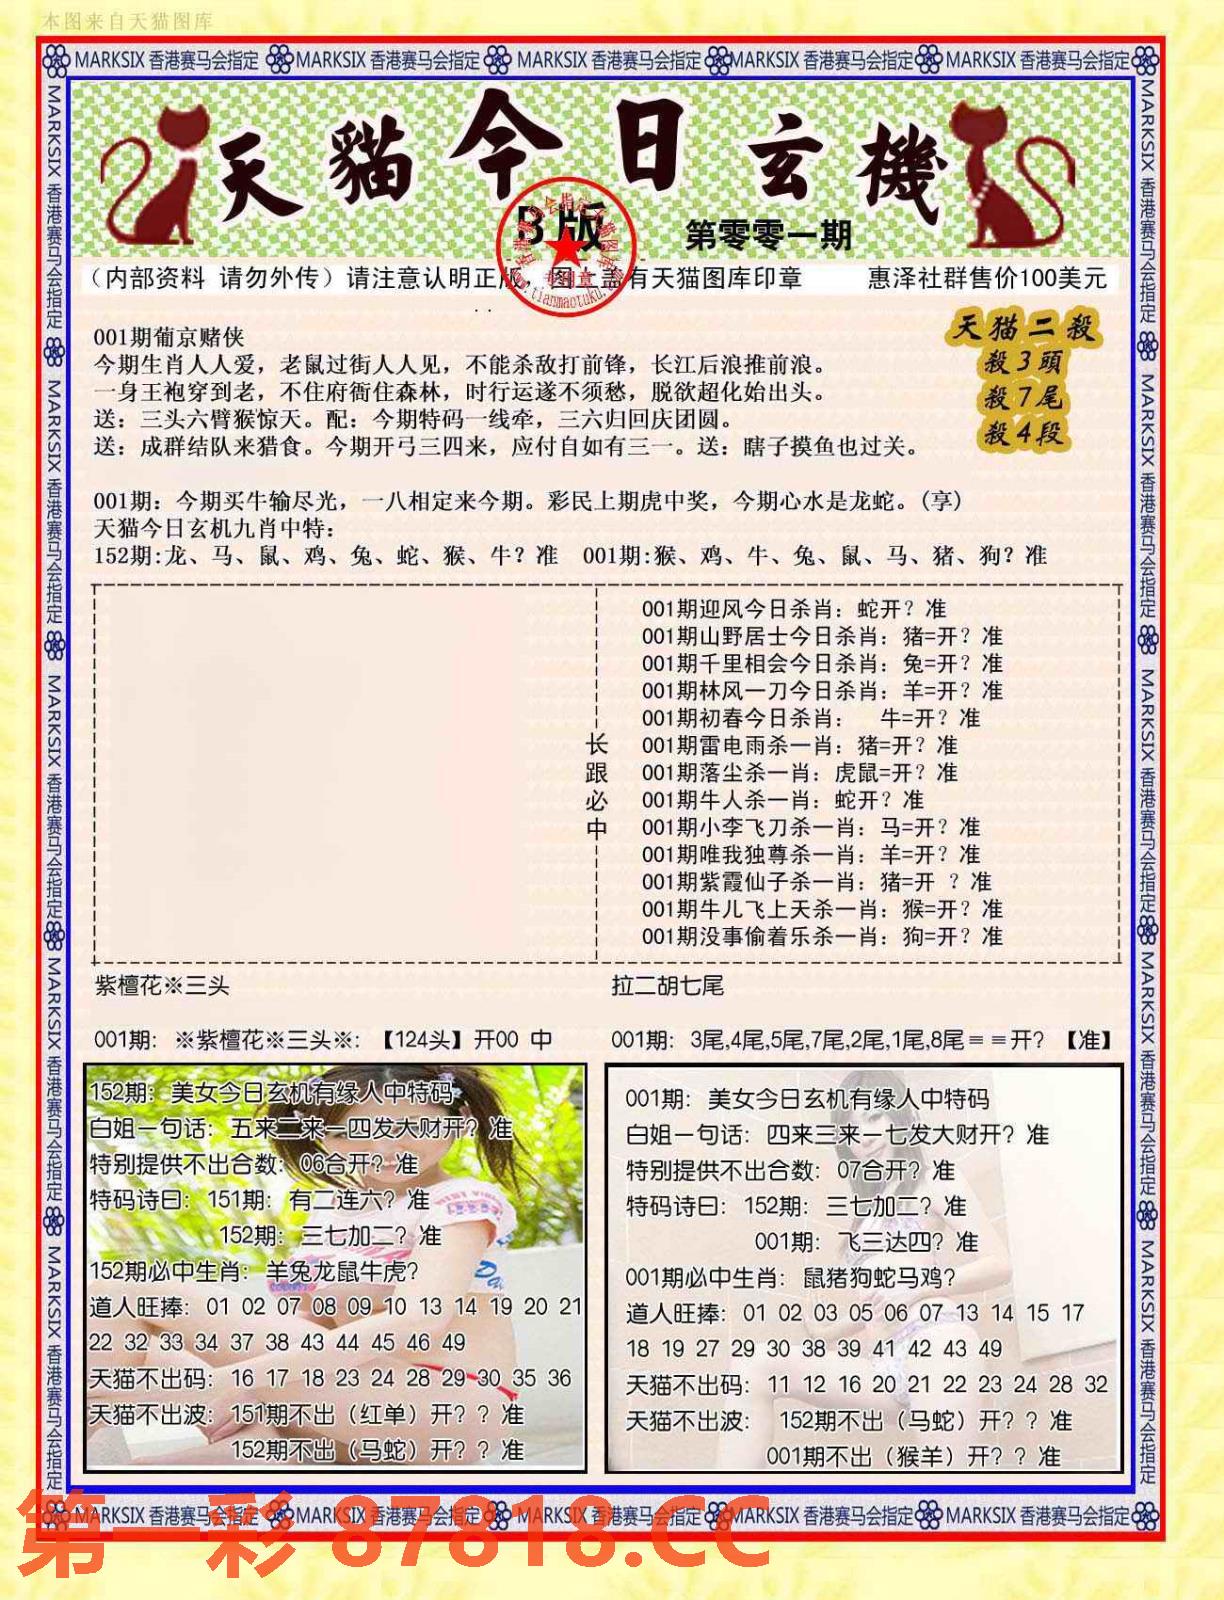 本图来自天猫图库
MARKSIX 香港赛马会指定 MARKSIX 香港赛马会指定 MARKSIX 香港赛马会指定 MARKSIX 香港赛马会指定 MARKSIX 香港赛马会指定
MARKSIX 香港赛马会指定 MARKSIX 香港赛马会指定 MARKSIX 香港赛马会指定 MARKSIX 香港赛马会指定 MARKSIX 香港赛马会指定
MARKSIX 香港赛马会指定 MARKSIX 香港赛马会指定 MARKSIX 香港赛马会指定 MARKSIX 香港赛马会指定 MARKSIX 香港赛马会指定
天貓今日玄機
B版
第零零一期
专用章
www.tianmaotuku.
（内部资料 请勿外传）请注意认明正版 图上盖有天猫图库印章 惠泽社群售价100美元
天猫二殺
殺3頭
殺7尾
殺4段
001期葡京赌侠
今期生肖人人爱，老鼠过街人人见，不能杀敌打前锋，长江后浪推前浪。
一身王袍穿到老，不住府衙住森林，时行运遂不须愁，脱欲超化始出头。
送：三头六臂猴惊天。配：今期特码一线牵，三六归回庆团圆。
送：成群结队来猎食。今期开弓三四来，应付自如有三一。送：瞎子摸鱼也过关。
001期：今期买牛输尽光，一八相定来今期。彩民上期虎中奖，今期心水是龙蛇。(享)
天猫今日玄机九肖中特：
152期:龙、马、鼠、鸡、兔、蛇、猴、牛？准 001期:猴、鸡、牛、兔、鼠、马、猪、狗？准
长跟必中
001期迎风今日杀肖：蛇开？准
001期山野居士今日杀肖：猪=开？准
001期千里相会今日杀肖：兔=开？准
001期林风一刀今日杀肖：羊=开？准
001期初春今日杀肖： 牛=开？准
001期雷电雨杀一肖：猪=开？准
001期落尘杀一肖：虎鼠=开？准
001期牛人杀一肖：蛇开？准
001期小李飞刀杀一肖：马=开？准
001期唯我独尊杀一肖：羊=开？准
001期紫霞仙子杀一肖：猪=开 ？准
001期牛儿飞上天杀一肖：猴=开？准
001期没事偷着乐杀一肖：狗=开？准
紫檀花※三头
拉二胡七尾
001期：※紫檀花※三头※：【124头】开00 中
001期：3尾,4尾,5尾,7尾,2尾,1尾,8尾＝＝开？【准】
152期：美女今日玄机有缘人中特码
白姐一句话：五来二来一四发大财开？准
特别提供不出合数：06合开？准
特码诗曰：151期：有二连六？准
152期：三七加二？准
152期必中生肖：羊兔龙鼠牛虎？
道人旺捧：01 02 07 08 09 10 13 14 19 20 21
22 32 33 34 37 38 43 44 45 46 49
天猫不出码：16 17 18 23 24 28 29 30 35 36
天猫不出波：151期不出（红单）开？？准
152期不出（马蛇）开？？准
001期：美女今日玄机有缘人中特码
白姐一句话：四来三来一七发大财开？准
特别提供不出合数：07合开？准
特码诗曰：152期：三七加二？准
001期：飞三达四？准
001期必中生肖：鼠猪狗蛇马鸡？
道人旺捧：01 02 03 05 06 07 13 14 15 17
18 19 27 29 30 38 39 41 42 43 49
天猫不出码：11 12 16 20 21 22 23 24 28 32
天猫不出波： 152期不出（马蛇）开？？准
001期不出（猴羊）开？？准
MARKSIX 香港赛马会指定 MARKSIX 香港赛马会指定 MARKSIX 香港赛马会指定 MARKSIX 香港赛马会指定 MARKSIX 香港赛马会指定
第一彩 87818.CC